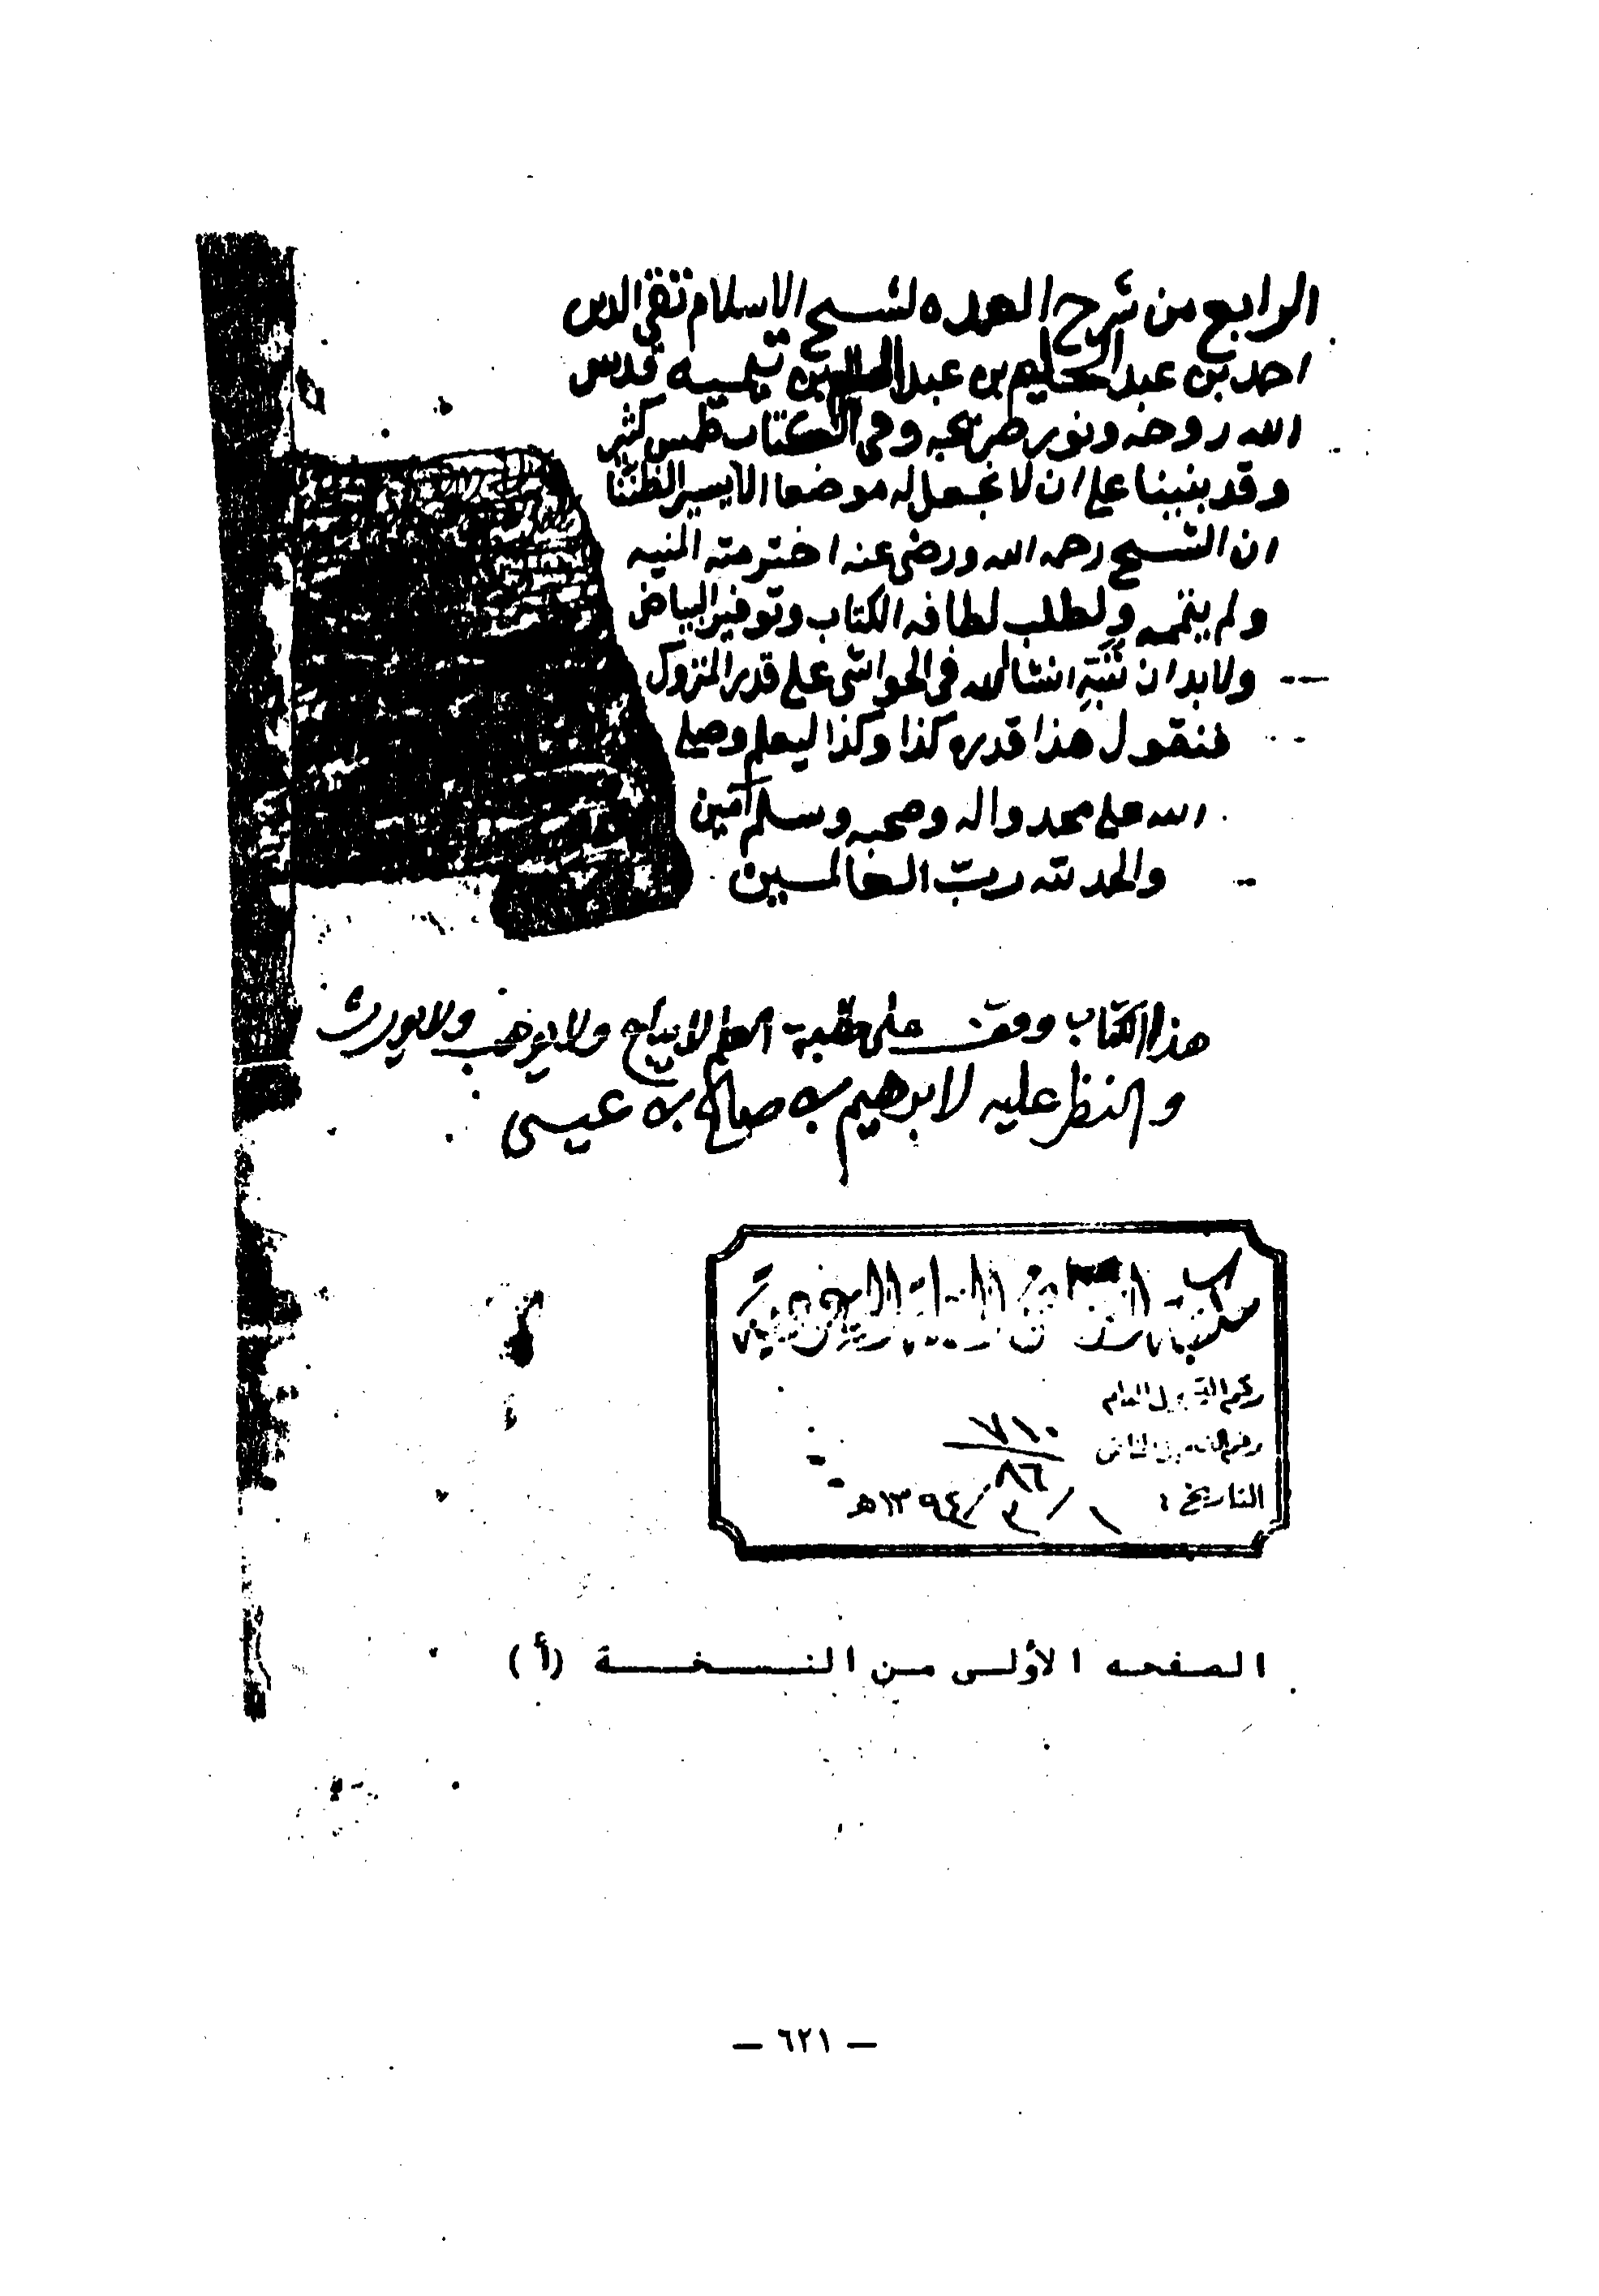 الرابع من شرح العمده لشيخ الاسلام تقي الدين
احمد بن عبد الحليم بن عبد السلام بن تيميه قدس
الله روحه ونور ضريحه وفي الكتاب طمس كثير
وقد بنينا على ان لا نجعل له موضعا الا يسير لظننا
ان الشيخ رحمه الله ورضي عنه اخترمته المنيه
ولم يتمه ولطلب لطافه الكتاب وتوفير البياض
ولابد ان ننبه انشا الله في الحواشي على قدر المتروك
فنقول هذا قدره كذا وكذا ليعلم وصلى
الله على محمد واله وصحبه وسلم آمين
والحمد لله رب العالمين
هذا الكتاب وقف على طلبة العلم لا يباع ولا يوهب ولا يورث
والنظر عليه لابرهيم بن صالح بن عيسى
مكتبة الرياض السعودية
رقم التسجيل العام
رقم التصنيف الخاص ٧١٠
٨٦
التاريخ : ١ / ٣ / ١٣٩٤ه
الصفحه الأولى من النسخة (أ)
— ٦٢١ —